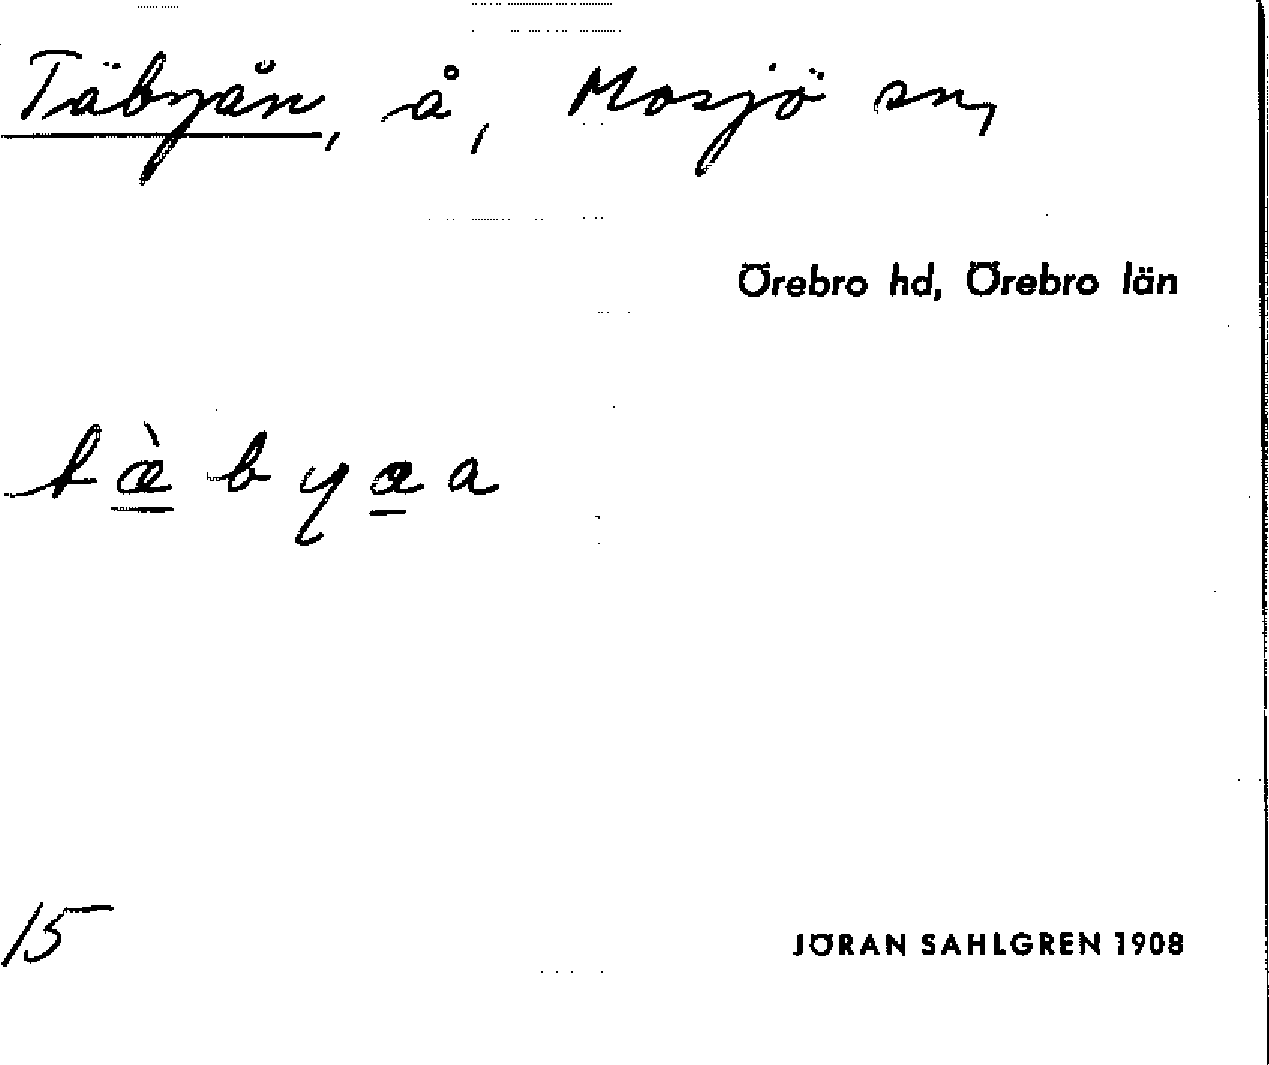 Täbyån, å, Mosjö sn,
Örebro hd, Örebro län
tæ̀byæa
15
JÖRAN SAHLGREN 1908